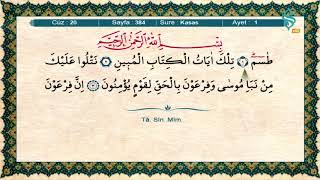 Cüz : 20 Sayfa : 384 Sure : Kasas Ayet : 1
بِسْمِ اللّٰهِ الرَّحْمٰنِ الرَّحِيمِ
طٰسٓمٓ ﴿١﴾ تِلْكَ اٰيَاتُ الْكِتَابِ الْمُبِينِ ﴿٢﴾ نَتْلُوا عَلَيْكَ
مِنْ نَبَاِ مُوسٰى وَفِرْعَوْنَ بِالْحَقِّ لِقَوْمٍ يُؤْمِنُونَ ﴿٣﴾ اِنَّ فِرْعَوْنَ
Tâ. Sîn. Mîm.